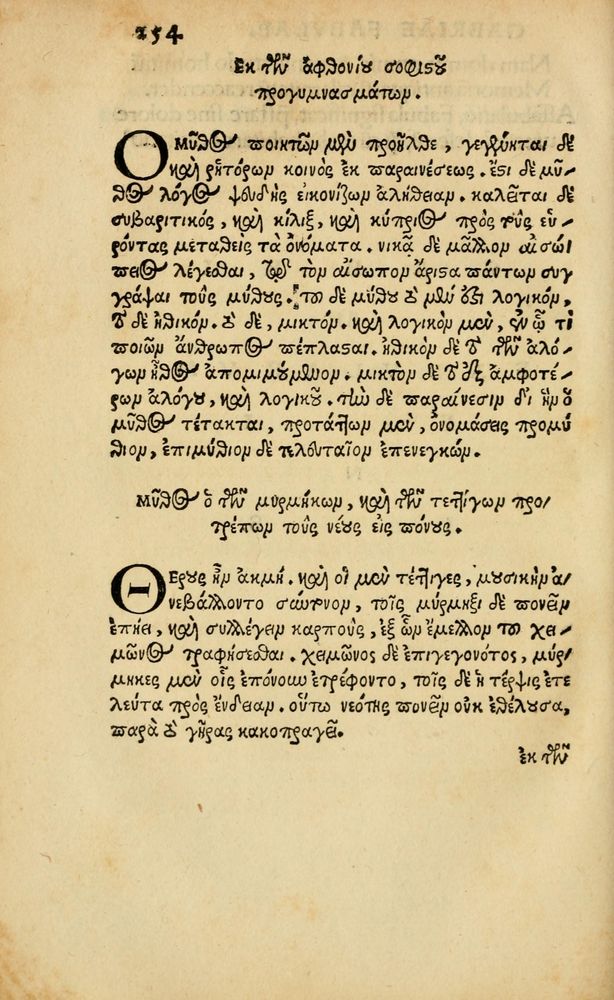 254
Εκ τῶν ἀφθονίου σοφιστοῦ
προγυμνασμάτων.
Ο ΜΥ͂θος ποιητῶν μὲν προῆλθε, γεγένηται δὲ
καὶ ῥητόρων κοινὸς ἐκ παραινέσεως. ἔστι δὲ μῦ-
θος λόγος ψευδὴς εἰκονίζων ἀλήθειαν. καλεῖται δὲ
συβαριτικὸς, καὶ κίλιξ, καὶ κύπριος πρὸς τοὺς εὑ-
ρόντας μεταθεὶς τὰ ὀνόματα. νικᾷ δὲ μᾶλλον αἰσώ-
πειος λέγεσθαι, τῷ τὸν αἴσωπον ἄριστα πάντων συγ
γράψαι τοὺς μύθους. τοῦ δὲ μύθου τὸ μέν ἐστι λογικόν,
τὸ δὲ ἠθικόν. τὸ δὲ, μικτόν. καὶ λογικὸν μὲν, ἐν ᾧ τὶ
ποιῶν ἄνθρωπος πέπλασται. ἠθικὸν δὲ τὸ τῶν ἀλό-
γων ἦθος ἀπομιμούμενον. μικτὸν δὲ τὸ ἐξ ἀμφοτέ-
ρων ἀλόγου, καὶ λογικοῦ. τὴν δὲ παραίνεσιν δι' ἣν ὁ
μῦθος τέτακται, προτάττων μὲν, ὀνομάσεις προμύ
θιον, ἐπιμύθιον δὲ τελευταῖον ἐπενεγκών.
Μῦθος ὁ τῶν μυρμήκων, καὶ τῶν τεττίγων προ-
τρέπων τοὺς νέους εἰς πόνους.
ΘΕρους ἦν ἀκμή. καὶ οἱ μὲν τέττιγες, μουσικὴν ἀ-
νεβάλλοντο σύντονον, τοῖς μύρμηξι δὲ πονεῖν
ἐπῄει, καὶ συλλέγειν καρποὺς, ἐξ ὧν ἔμελλον τοῦ χει-
μῶνος τραφήσεσθαι. χειμῶνος δὲ ἐπιγεγονότος, μύρ-
μηκες μὲν οἷς ἐπόνουν ἐτρέφοντο, τοῖς δὲ ἡ τέρψις ἐτε
λεύτα πρὸς ἔνδειαν. οὕτω νεότης πονεῖν οὐκ ἐθέλουσα,
παρὰ τὸ γῆρας κακοπραγεῖ.
ἐκ τῶν